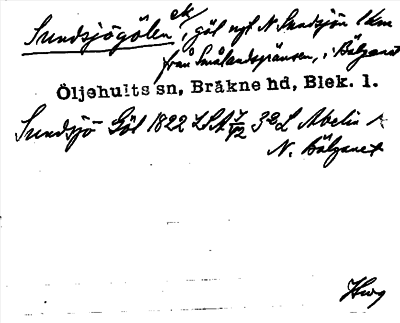 Sundsjögölen ek, göl nyt N Sundsjön 1 km
från Smålandsgränsen, i Bälganet
Öljehults sn, Bräkne hd, Blek. l.
Sundsjö Göl 1822 LSA 32 L Abelin
N. Bälganet